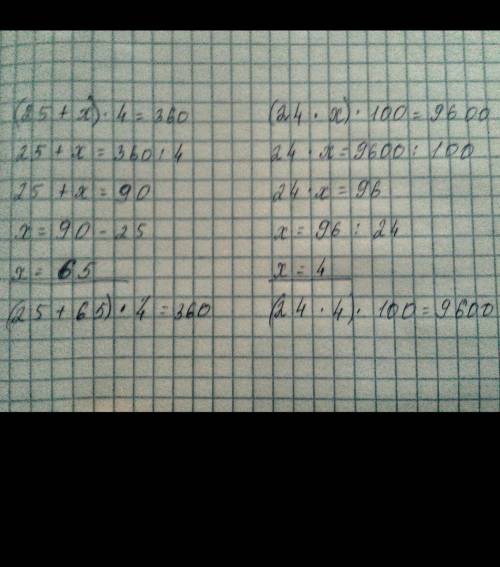 (25 + x) · 4 = 360
25 + x = 360 : 4
25 + x = 90
x = 90 - 25
x = 65
(25 + 65) · 4 = 360
(24 · x) · 100 = 9600
24 · x = 9600 : 100
24 · x = 96
x = 96 : 24
x = 4
(24 · 4) · 100 = 9600